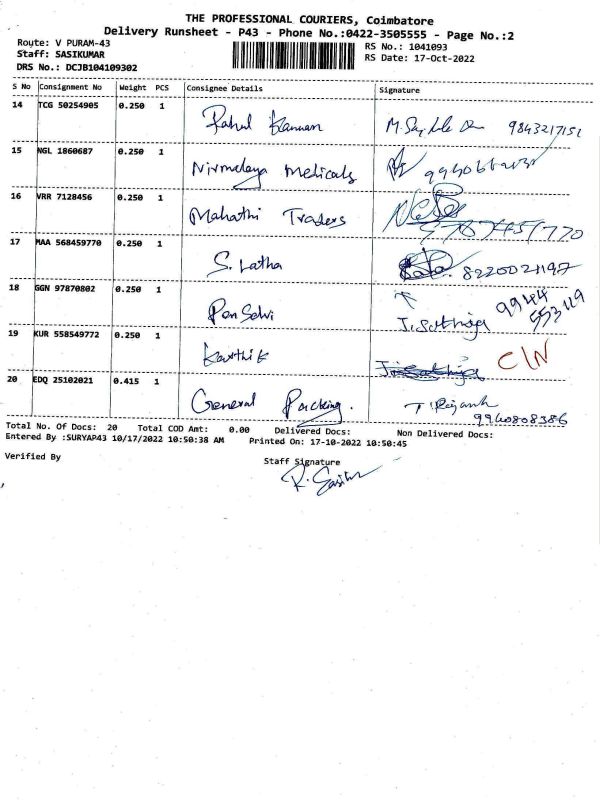 THE PROFESSIONAL COURIERS, Coimbatore
Delivery Runsheet - P43 - Phone No.:0422-3505555 - Page No.:2
Route: V PURAM-43
RS No.: 1041093
Staff: SASIKUMAR
RS Date: 17-Oct-2022
DRS No.: DCJB104109302
S No Consignment No Weight PCS Consignee Details Signature
14 TCG 50254905 0.250 1 Rahul Kannan 9843217151
15 NGL 1860687 0.250 1 Nirmalaya Medicals
16 VRR 7128456 0.250 1 Mahathi Traders 9787451770
17 MAA 568459770 0.250 1 S. Latha 8220021197
18 GGN 97870802 0.250 1 Pon Selvi J. Sathiya 9944
553119
19 KUR 558549772 0.250 1 Karthik CIN
20 EDQ 25102021 0.415 1 General Packing. T. Priyanth
9940808386
Total No. Of Docs: 20 Total COD Amt: 0.00 Delivered Docs: Non Delivered Docs:
Entered By :SURYAP43 10/17/2022 10:50:38 AM Printed On: 17-10-2022 10:50:45
Verified By
Staff Signature